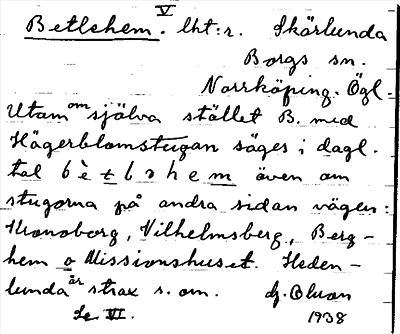 V
Betlehem. lht:r. Skärlunda
Borgs sn.
Norrköping. Ögl.
Utom om själva stället B. med
Hägerblomstugan säges i dagl.
tal bètləhem även om
stugorna på andra sidan vägen:
Kronoborg, Vilhelmsberg, Berg-
hem o Missionshuset. Heden-
lunda är strax s. om.
Se VI. 1938